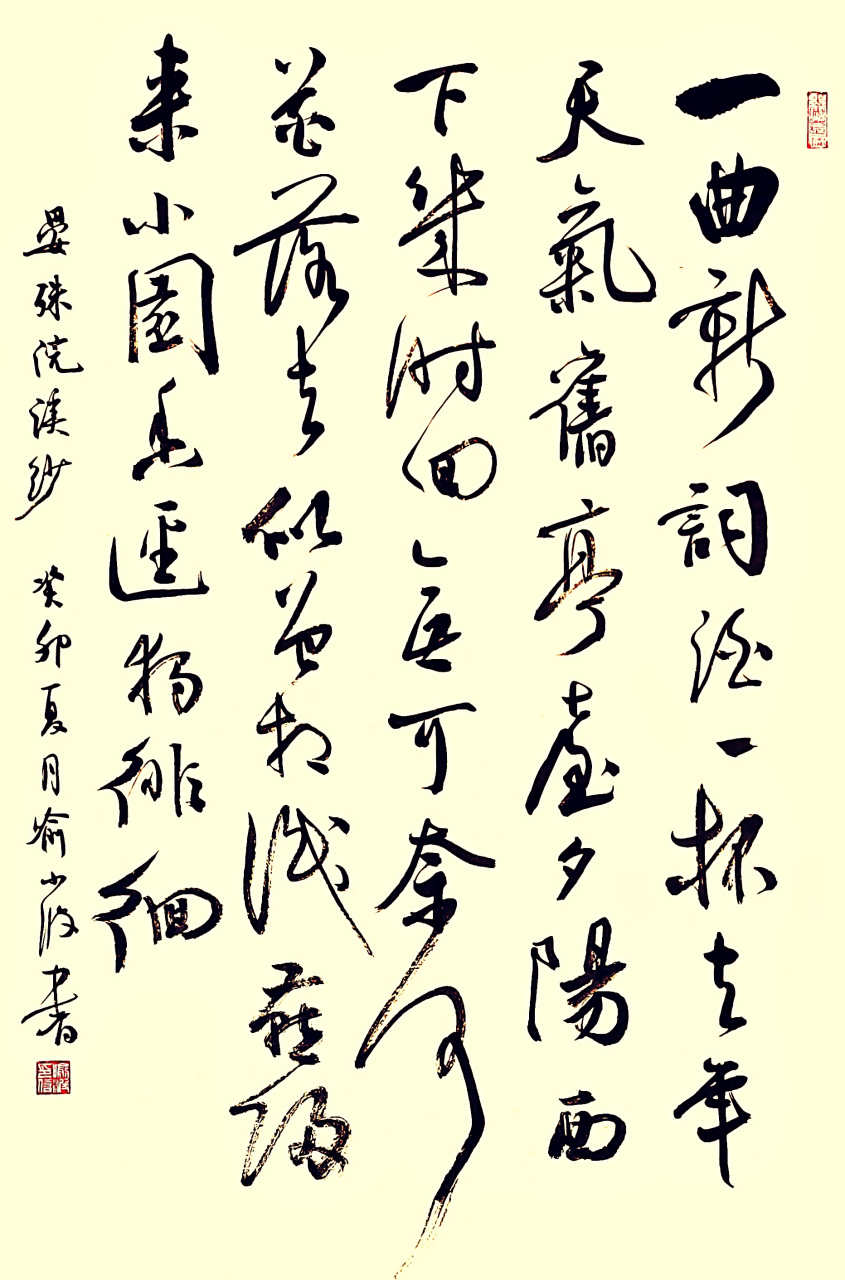 一曲新詞酒一杯去年
天氣舊亭臺夕陽西
下幾时回無可奈何
花落去似曾相识燕歸
来小園香徑獨徘徊
晏殊浣溪紗 癸卯夏月喻小波书